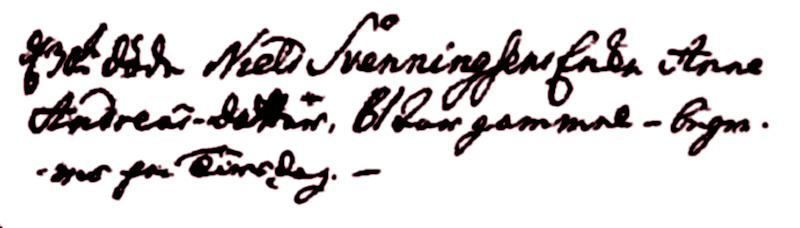 døde Niels Svenningsens Enke Anne
Andreas-datter, 81 Aar gammel –
paa Tiirsdag. –